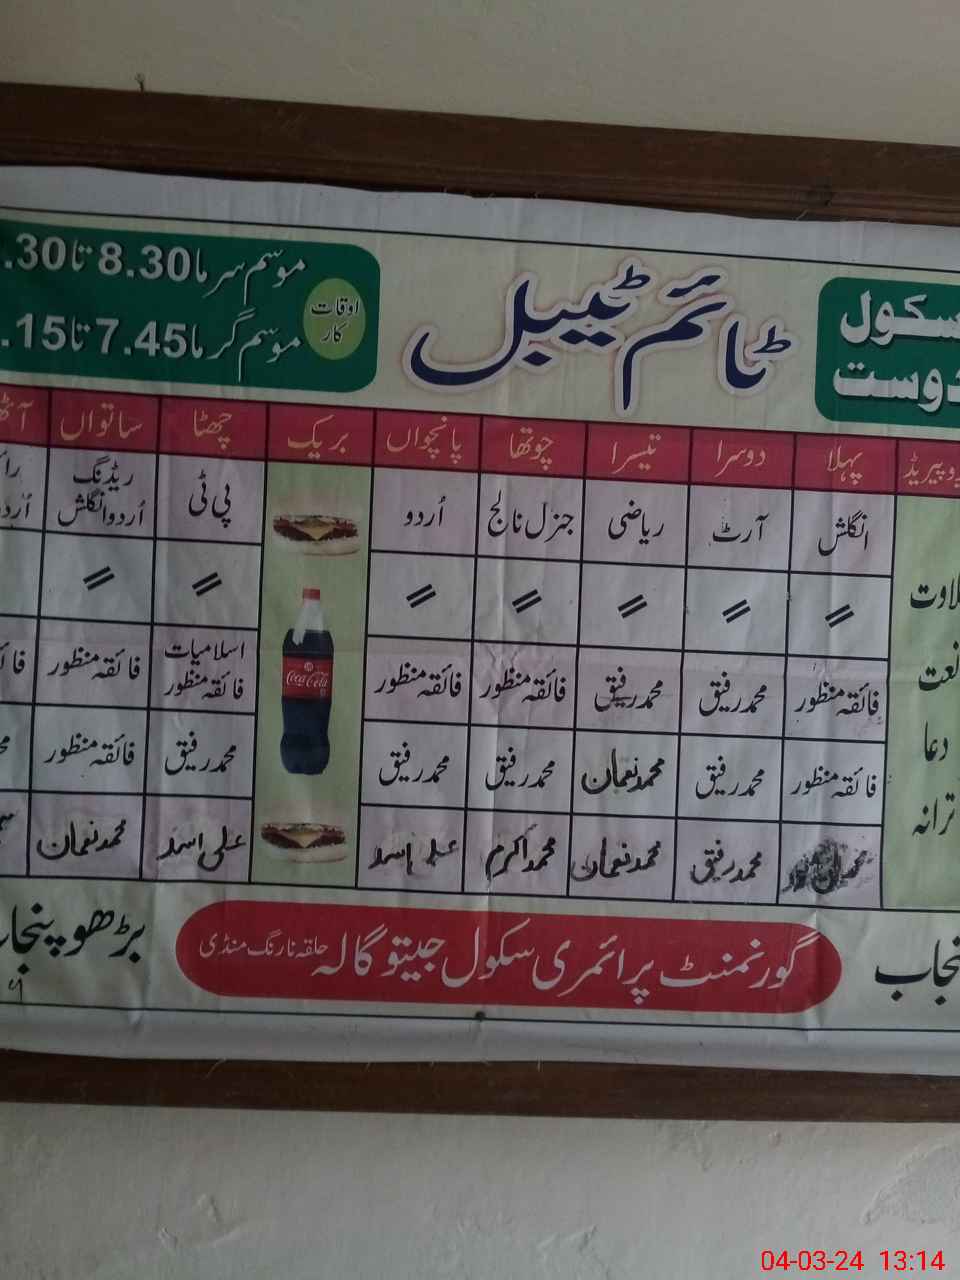 سکول
دوست
ٹائم ٹیبل
اوقات
کار
موسم سرما 8.30 تا 30.
موسم گرما 7.45 تا 15.
پیریڈ پہلا دوسرا تیسرا چوتھا پانچواں بریک چھٹا ساتواں
انگلش آرٹ ریاضی جنرل نالج اُردو پی ٹی ریڈنگ اُردو انگلش
〃 〃 〃 〃 〃 〃 〃
فائقہ منظور محمد رفیق محمد رفیق فائقہ منظور فائقہ منظور اسلامیات فائقہ منظور فائقہ منظور
فائقہ منظور محمد رفیق محمد نعمان محمد رفیق محمد رفیق محمد رفیق فائقہ منظور
محمد رفیق محمد نعمان محمد اکرم علی اسد علی اسد محمد نعمان
نعت
دعا
ترانہ
Coca-Cola
گورنمنٹ پرائمری سکول جیتو گالہ حلقہ نارنگ منڈی
بڑھو
04-03-24 13:14